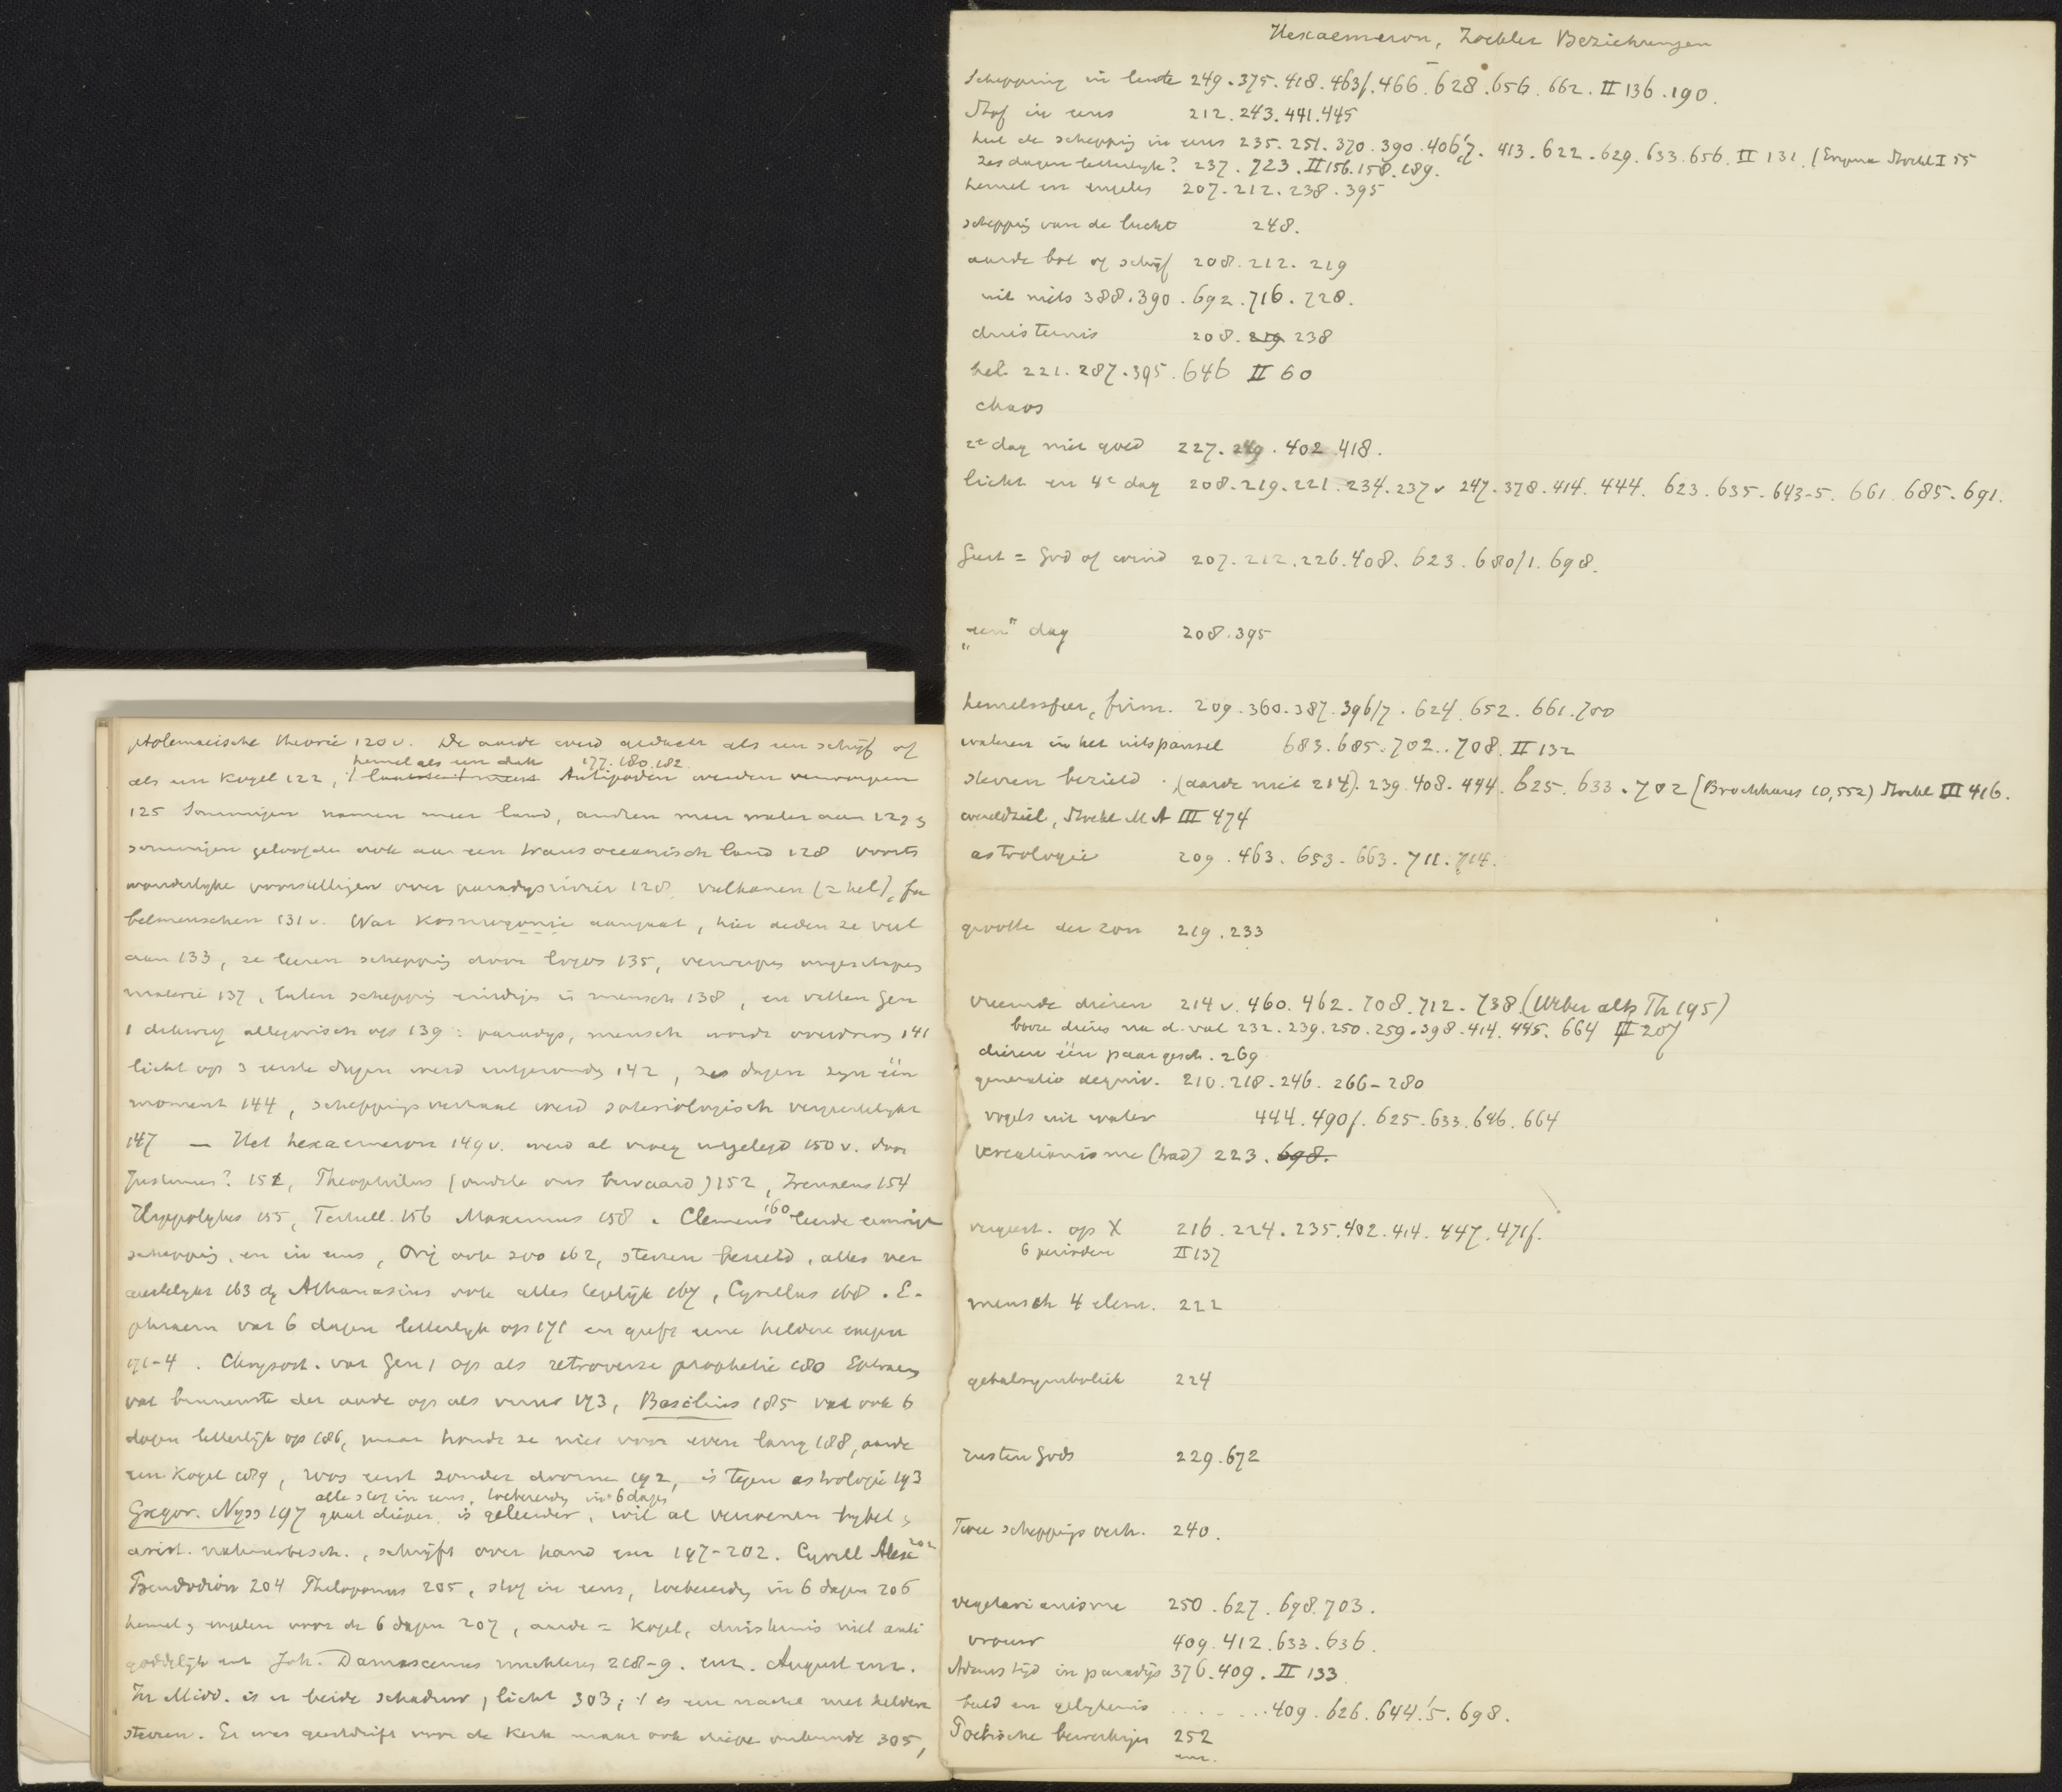 ptolemaeische theorie 120 v. De aarde werd gedacht als een schijf of
hemel als een dak 177. 180. 182
als een Kogel 122, Antipoden werden verworpen
125 Sommigen namen meer land, andren meer water aan
sommigen geloofden ook aan een transoceanisch land 128 voorts
wonderlyke voorstellingen over paradysrivier 128 vulkanen (= hel), fa
belmenschen 131 v. Wat Kosmogonie aangaat, hier deden ze veel
aan 133, ze leeren schepping door logos 135, verwerpen ongeschapen
materie 137, laten schepping eindigen in mensch 138, en vatten Gen
1 dikwerf allegorisch op 139 : paradys, mensch wordt overdreven 141
licht op 3 eerste dagen werd 142, zes dagen zyn één
moment 144, scheppingsverhaal werd soteriologisch vergeestelykt
147 — Het hexaemeron 149 v. werd al vroeg uitgelegd 150 v. door
Justinus? 152, Theophilus (oudste ons bewaard) 152, Irenaeus 154
Hyppolytus 155, Tertull. 156 Maximus 158. Clemens 160 leerde eeuwige
schepping, en in eens, Orig ook zoo 162, sterren bezield, alles ver
geestelykt 163 Athanasius ook alles 167, Cyrillus 168. E-
phraem vat 6 dagen letterlyk op 171 en geeft eene heldere exegese
171-4. Chrysost. vat Gen 1 op als retroverse prophetie 180 Ephraem
vat binnenste der aarde op als vuur 173, Basilius 185 vat ook 6
dagen letterlijk op 186, maar houdt ze niet voor even lang 188, aarde
een Kogel 189, roos eerst zonder doorne 192, is tegen astrologie 193
alle stof in eens, toebereid in 6 dagen
Gregor. Nyss 197 gaat dieper, is geleerder, wil al verzoenen bybel &
arist. natuurbesch., schrijft over hand enz 197-202. Cyrill Alex 202
Pseudodion 204 Philoponus 205, stof in eens, toebereid in 6 dagen 206
hemel & engelen voor de 6 dagen 207, aarde = Kogel, duisternis niet anti
goddelijk enz Joh. Damascenus 218-9. enz. August enz.
In Midd. is er beide schaduw, licht 303; 't is een nacht met heldere
sterren. Er was geestdrift voor de Kerk maar ook diepe onkunde 305,
Hexaemeron, Zöckler Beziehungen
Schepping in lente 249. 375. 418. 463f. 466. 628. 656. 662. II 136. 190.
Stof in eens 212. 243. 441. 445
heel de schepping in eens 235. 251. 370. 390. 406/7. 413. 622. 629. 633. 656. II 131. (Erigena Stockl I 55
zes dagen letterlyk? 237. 723. II 156. 158. 189.
hemel en engelen 207. 212. 238. 395
schepping van de lucht 248.
aarde bol of schijf 208. 212. 219
uit niets 388. 390. 692. 716. 728.
duisternis 208. 219 238
hel. 221. 287. 395. 646 II 60
chaos
2e dag niet goed 227. 249. 402. 418.
licht en 4e dag 208. 219. 221. 234. 237 v 247. 378. 414. 444. 623. 635. 643-5. 661. 685. 691.
Geest = God of wind 207. 212. 226. 408. 623. 680/1. 698.
„een" dag 208. 395
hemelssfeer, firm. 209. 360. 387. 396/7. 624. 652. 661. 700
wateren in het uitspansel 683. 685. 702. 708. II 132
sterren bezield. (aarde niet 214). 239. 408. 444. 625. 633. 702 (Brockhaus 10,552) Stockl III 416.
wereldziel, Stockl M A III 474
astrologie 209. 463. 653. 663. 711. 714.
grootte der zon 219. 233
vreemde dieren 214 v. 460. 462. 708. 712. 738 (Weber altk Th 195)
booze dieren na d. val 232. 239. 250. 259. 398. 414. 445. 664 II 207
dieren één paar gesch. 269
generatio aequiv. 210. 218. 246. 266-280
vogels uit water 444. 490f. 625. 633. 646. 664
creatianisme (trad) 223. 698.
vergeest. op X 216. 224. 235. 402. 414. 447. 471f.
6 perioden II 137
mensch 4 elem. 222
getalsymboliek 224
rusten Gods 229. 672
Twee scheppings verh. 240.
vegetarianisme 250. 627. 698. 703.
vrouw 409. 412. 633. 636.
Adams tijd in paradijs 376. 409. II 133
beeld en gelykenis ....... 409. 626. 644/5. 698.
Poëtische bewerkingen 252
enz.